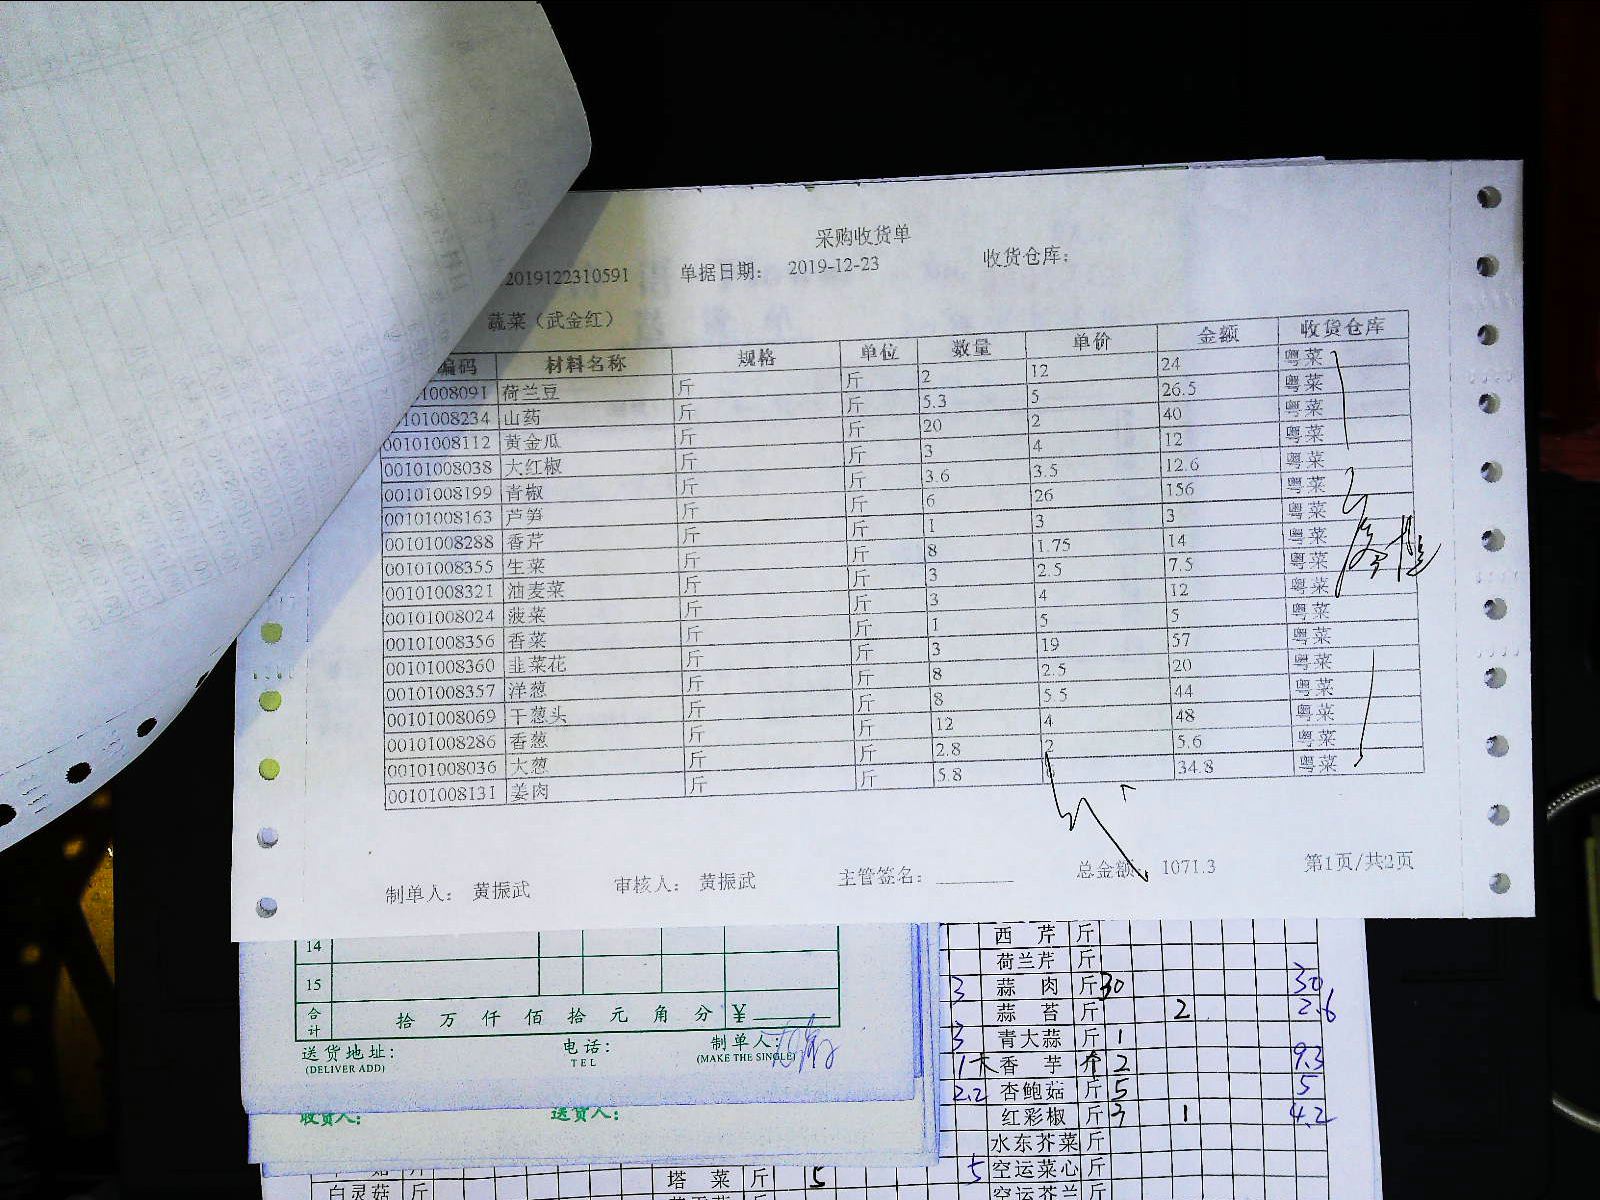 采购收货单
2019122310591 单据日期： 2019-12-23 收货仓库：
蔬菜（武金红）
编码 材料名称 规格 单位 数量 单价 金额 收货仓库
01008091 荷兰豆 斤 斤 2 12 24 粤菜
0101008234 山药 斤 斤 5.3 5 26.5 粤菜
00101008112 黄金瓜 斤 斤 20 2 40 粤菜
00101008038 大红椒 斤 斤 3 4 12 粤菜
00101008199 青椒 斤 斤 3.6 3.5 12.6 粤菜
00101008163 芦笋 斤 斤 6 26 156 粤菜
00101008288 香芹 斤 斤 1 3 3 粤菜
00101008355 生菜 斤 斤 8 1.75 14 粤菜
00101008321 油麦菜 斤 斤 3 2.5 7.5 粤菜
00101008024 菠菜 斤 斤 3 4 12 粤菜
00101008356 香菜 斤 斤 1 5 5 粤菜
00101008360 韭菜花 斤 斤 3 19 57 粤菜
00101008357 洋葱 斤 斤 8 2.5 20 粤菜
00101008069 干葱头 斤 斤 8 5.5 44 粤菜
00101008286 香葱 斤 斤 12 4 48 粤菜
00101008036 大葱 斤 斤 2.8 2 5.6 粤菜
00101008131 姜肉 斤 斤 5.8 34.8 粤菜
制单人： 黄振武 审核人： 黄振武 主管签名： 总金额： 1071.3 第1页/共2页
14
15
合计 拾 万 仟 佰 拾 元 角 分 ¥
送货地址： 电话： 制单人：
(DELIVER ADD) TEL (MAKE THE SINGLE)
收货人： 送货人：
西芹 斤
荷兰芹 斤
3 蒜肉 斤 30 30
蒜苔 斤 2 2.6
3 青大蒜 斤 1
1大 香芋 个 2 9.3
2.2 杏鲍菇 斤 5 5
红彩椒 斤 3 1 4.2
水东芥菜 斤
5 空运菜心 斤
空运芥兰 斤
塔菜 斤 5
白灵菇 斤